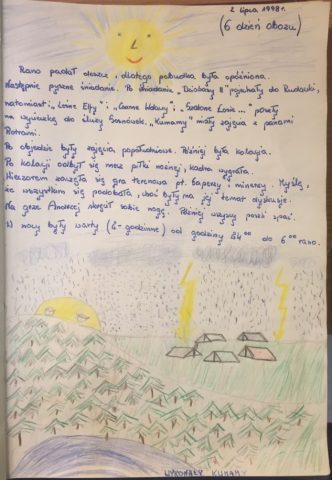 2 lipca 1998r.
(6 dzień obozu)
Rano padał deszcz i dlatego pobudka była opóźniona.
Następnie pyszne śniadanie. Po śniadaniu „Dziobasy" pojechały do Rudawki,
natomiast: „Leśne Elfy" i „Czarne Wdowy" i „Szalone Łosie..." poszły
na wycieczkę do śluzy Sosnówek. „Kunamy" miały zajęcia z
Po obiedzie były zajęcia popołudniowe. Później była kolacja.
Po kolacji odbył się mecz piłki nożnej, kadra wygrała.
Wieczorem zaczęła się gra terenowa pt. Saperzy i minerzy. Myślę,
że wszystkim się podobała, choć były na jej temat dyskusje.
Na grze Andrzej skręcił sobie nogę. Później wszyscy poszli spać.
W nocy były warty (2-godzinne) od godziny 24⁰⁰ do 6⁰⁰ rano.
WYKONAŁY KUNAMY